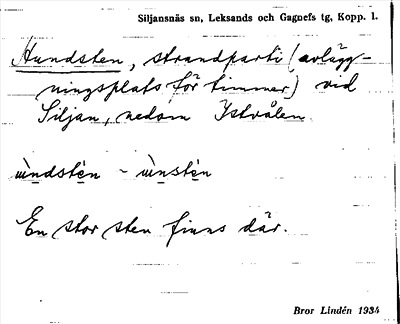 Siljansnäs sn, Leksands och Gagnefs tg, Kopp. l.
Hundsten, strandparti (avlägg-
ningsplats för timmer) vid
Siljan, nedom Ystvålen.
ùndstèn ~ ùnstèn
En stor sten finns där.
Bror Lindén 1934